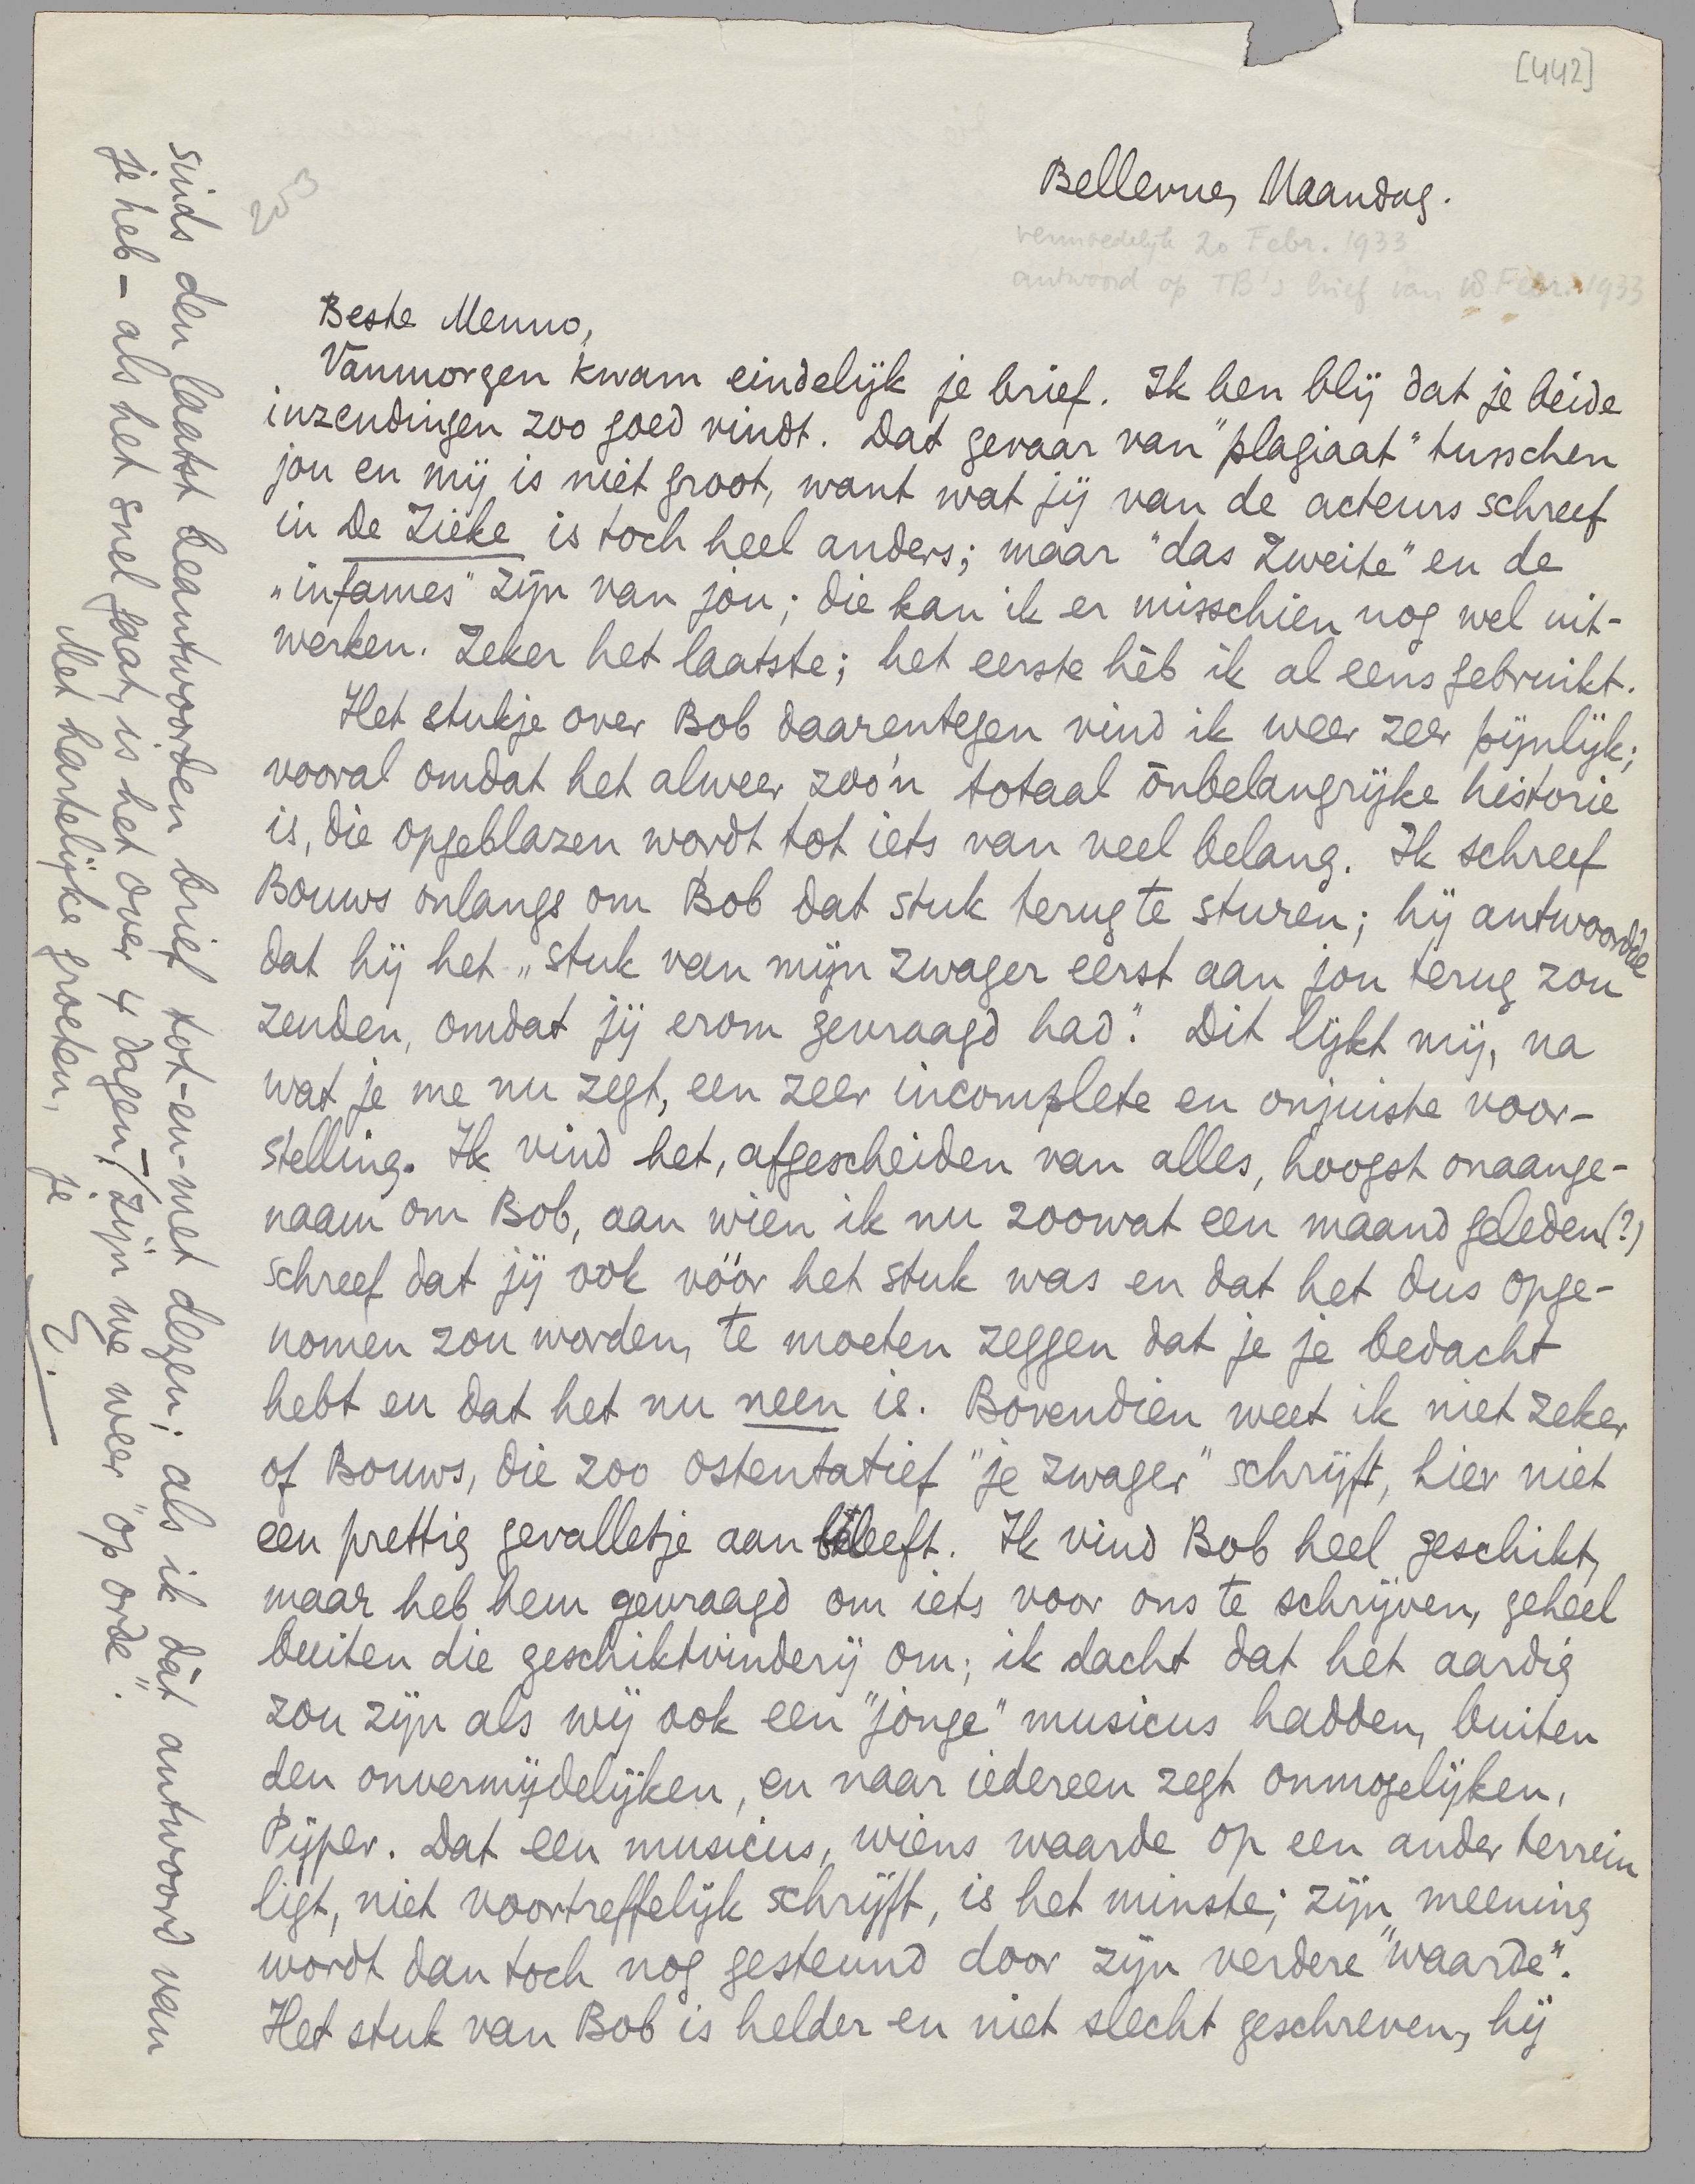 [442]
253
Bellevue, Maandag.
vermoedelijk 20 Febr. 1933
antwoord op TB's brief van 18 Febr. 1933
Beste Menno,
Vanmorgen kwam eindelijk je brief. Ik ben blij dat je beide
inzendingen zoo goed vindt. Dat gevaar van "plagiaat" tusschen
jou en mij is niet groot, want wat jij van de acteurs schreef
in De Zieke is toch heel anders; maar "das Zweite" en de
"infames" zijn van jou; die kan ik er misschien nog wel uit-
werken. Zeker het laatste; het eerste hèb ik al eens gebruikt.
Het stukje over Bob daarentegen vind ik weer zeer pijnlijk;
vooral omdat het alweer zoo'n totaal ònbelangrijke historie
is, die opgeblazen wordt tot iets van veel belang. Ik schreef
Bouws onlangs om Bob dat stuk terug te sturen; hij antwoordde
dat hij het "stuk van mijn zwager eerst aan jou terug zou
zenden, omdat jij erom gevraagd had." Dit lijkt mij, na
wat je me nu zegt, een zeer incomplete en onjuiste voor-
stelling. Ik vind het, afgescheiden van alles, hoogst onaange-
naam om Bob, aan wien ik nu zoowat een maand geleden (?)
schreef dat jij ook vóór het stuk was en dat het dus opge-
nomen zou worden, te moeten zeggen dat je je bedacht
hebt en dat het nu neen is. Bovendien weet ik niet zeker
of Bouws, die zoo ostentatief "je zwager" schrijft, hier niet
een prettig gevalletje aan beleeft. Ik vind Bob heel geschikt,
maar heb hem gevraagd om iets voor ons te schrijven, geheel
buiten die geschiktvinderij om; ik dacht dat het aardig
zou zijn als wij ook een "jonge" musicus hadden, buiten
den onvermijdelijken, en naar iedereen zegt onmogelijken,
Pijper. Dat een musicus, wiens waarde op een ander terrein
ligt, niet voortreffelijk schrijft, is het minste; zijn meening
wordt dan toch nog gesteund door zijn verdere "waarde".
Het stuk van Bob is helder en niet slecht geschreven, hij
sinds den laatst beantwoorden brief tot-en-met dezen; als ik dàt antwoord van
je heb – als het snel gaat, is het over 4 dagen, – zijn we weer "op orde".
Met hartelijke groeten, je
E.